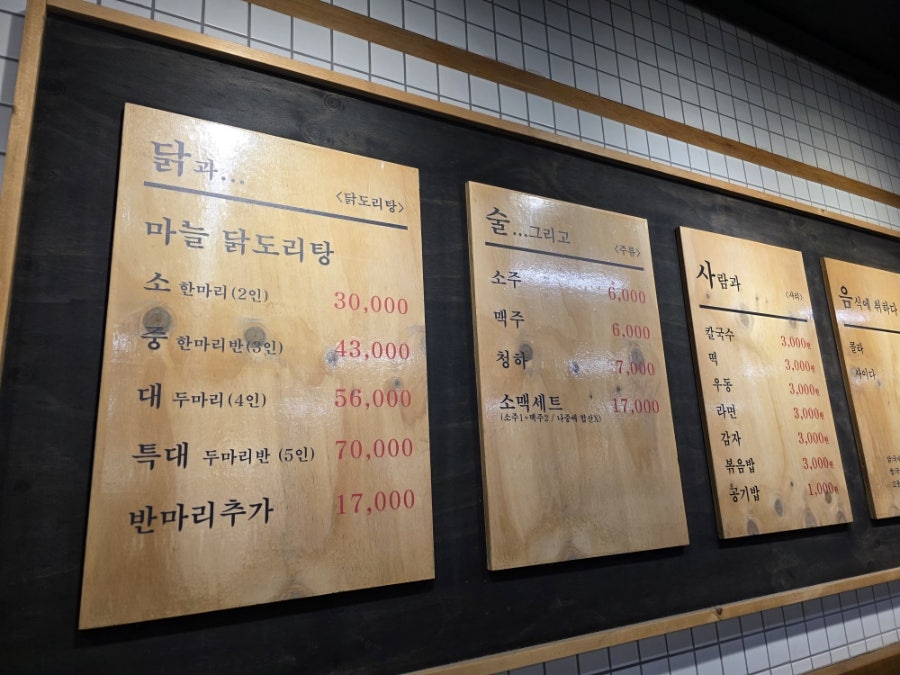 닭과...
<닭도리탕>
마늘 닭도리탕
소 한마리(2인) 30,000
중 한마리반(3인) 43,000
대 두마리(4인) 56,000
특대 두마리반 (5인) 70,000
반마리추가 17,000
술...그리고
<주류>
소주 6,000
맥주 6,000
청하 7,000
소맥세트 17,000
(소주1+맥주2 / 나중에 합산X)
사람과
<사리>
칼국수 3,000원
떡 3,000원
우동 3,000원
라면 3,000원
감자 3,000원
볶음밥 3,000원
공기밥 1,000원
음식에 취하다
콜라
사이다